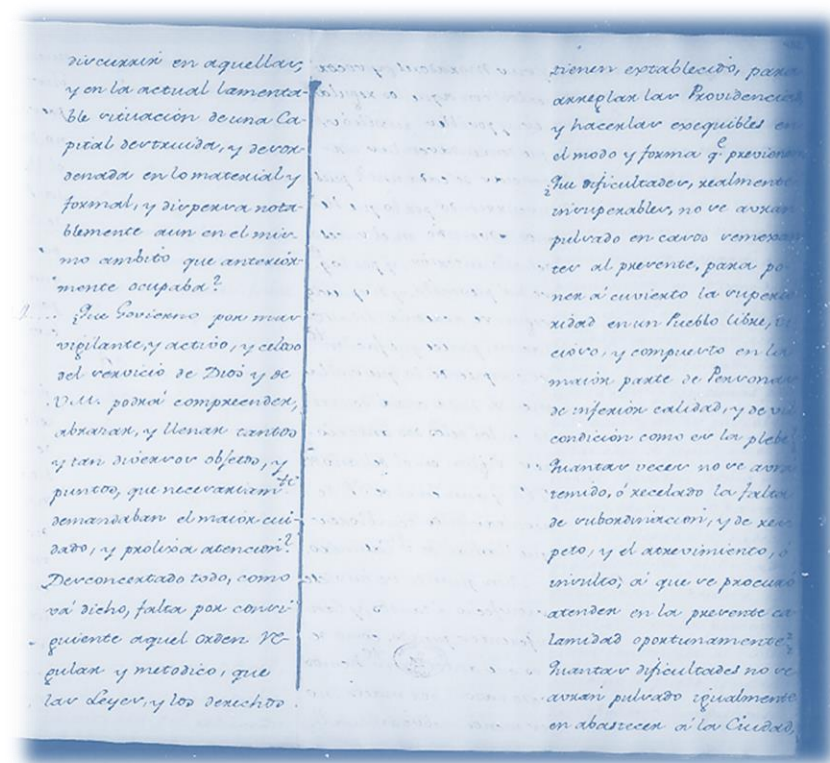 discurrir en aquellas,
y en la actual lamenta-
ble situación de una Ca-
pital destruida, y desor-
denada en lo material y
formal, y dispersa nota-
blemente aun en el mis-
mo ambito que anterior-
mente ocupaba?
¿Que Govierno por mas
vigilante, y activo, y celoso
del servicio de Dios y de
V.M. podrá comprender,
abrazar, y llenar tantos
y tan diversos objetos, y
puntos, que necesariam.te
demandaban el maior cui-
dado, y prolixa atención?
Desconcertado todo, como
vá dicho, falta por consi-
guiente aquel orden re-
gular y metodico, que
las Leyes, y los derechos
tienen establecido, para
arreglar las Providencias
y hacerlas exequibles en
el modo y forma q.e previenen
¿Que dificultades, realmente
insuperables, no se avran
pulsado en casos semejan
tes al presente, para po-
ner á cuvierto la superio
ridad en un Pueblo libre,
cioso, y compuesto en la
maior parte de Personas
de inferior calidad, y de vil
condición como es la plebe?
Quantas veces no se avrá
temido, ó recelado la falta
de subordinacion, y de res
peto, y el atrevimiento, ó
insulto, á que se procuró
atender en la presente ca
lamidad oportunamente?
Quantas dificultades no se
avrán pulsado igualmente
en abastecer á la Ciudad,